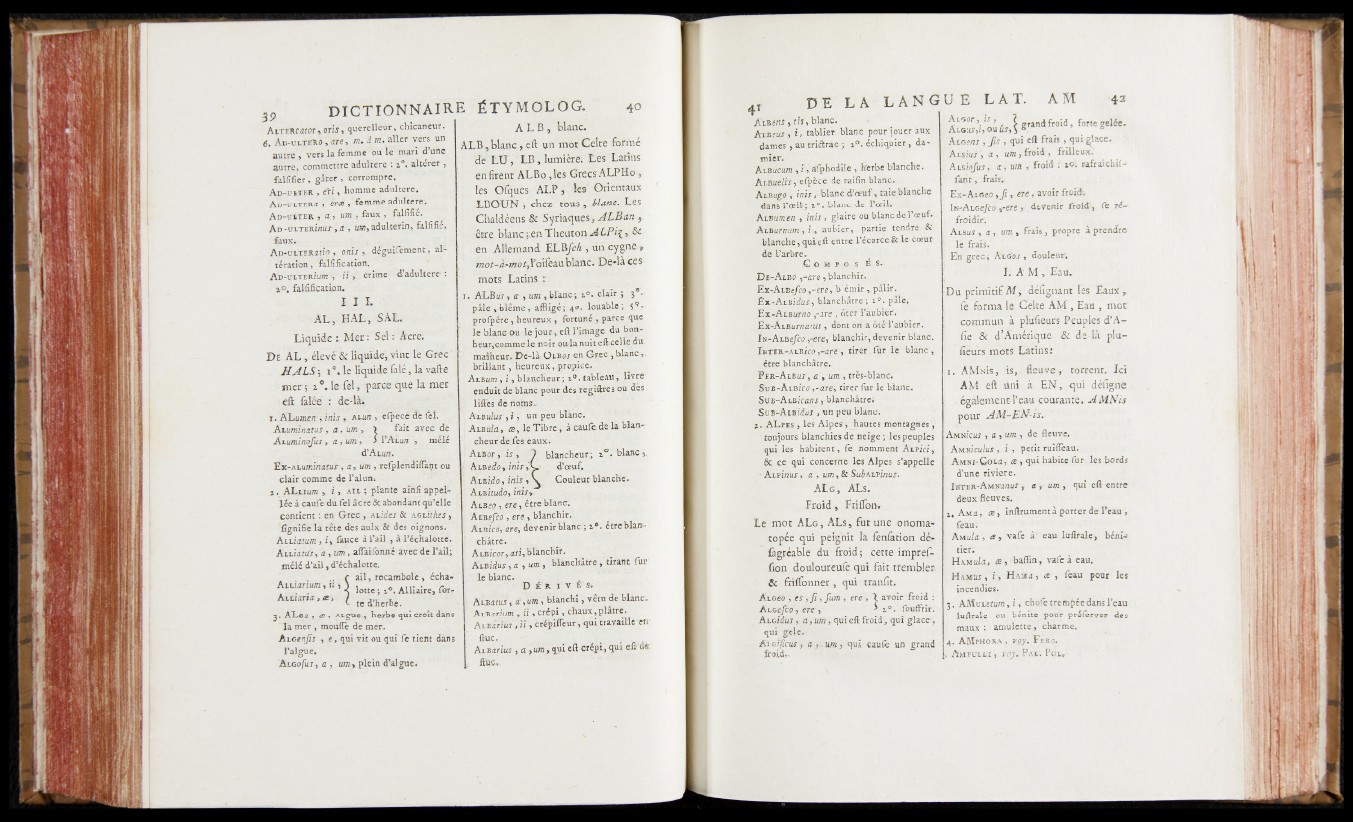 39 DICTIONNAIRE ÉTYMOLOG. 40
ALTERcator, oris, querelleur, chicaneur.
6. AD-ULTERO, are, m. à m. aller vers un
autre, vers la femme ou le mari d'une
autre, commettre adultere : 2°. altérer,
falſifier, gâter, corrompre.
AD-ULTER, eri, homme adultere.
AD-ULTERA, eræ, femme adultere.
AD-ULTER, a, um, faux, falſifié.
AD-ULTERinus, a, um, adulterin, falſifié,
faux.
AD-ULTERatio, onis, déguiſement, al-
tération, falſification.
AD-ULTERium, ii, crime d'adultere :
2°. falſification.
III.
AL, HAL, SAL.
Liquide : Mer : Sel : Acre.
DE AL, élevé & liquide, vint le Grec
HALS; 1°. le liquide ſalé, la vaſte
mer; 2°. le ſel, parce que la mer
eſt ſalée : de-là.
1. ALumen, inis, ALun, eſpece de ſel.
ALuminatus, a, um, } fait avec de
ALuminoſus, a, um, } l'ALun, mêlé
d'ALun.
Ex-ALuminatus, a, um, reſplendiſſant ou
clair comme de l'alun.
2. ALLium, i, AIL; plante ainſi appel-
lée à cauſe du ſel âcre & abondant qu'elle
contient : en Grec, ALides & AGLithes,
ſignifie la tête des aulx & des oignons.
ALLiatum, i, ſauce à l'ail, à l'échalotte.
ALLiatus, a, um, aſſaiſonné avec de l'ail;
mêlé d'ail, d'échalotte.
ALLiarium, ii, { ail, rocambole, écha-
ALLiaria, æ, { lotte; 2°. Alliaire, ſor-
te d'herbe.
3. ALGa, æ, ALgue, herbe qui croît dans
la mer, mouſſe de mer.
ALGenſis, e, qui vit ou qui ſe tient dans
l'algue.
ALGoſus, a, um, plein d'algue.
ALB, blanc.
ALB, blanc, eſt un mot Celte formé
de LU, LB, lumière. Les Latins
en firent ALBo, les Grecs ALPHo,
les Oſques ALP, les Orientaux
LBOUN, chez tous, blanc. Les
Chaldéens & Syriaques, ALBan,
être blanc; en Theuton ALPiz, &
en Allemand ELBſch, un cygne,
mot-à-mot, l'oiſeau blanc. De-là ces
mots Latins :
1. ALBus, a, um, blanc; 2°. clair; 3°.
pâle, blême, affligé; 4°. louable; 5°.
proſpère, heureux, fortuné, parce que
le blanc ou le jour, eſt l'image du bon-
heur, comme le noir ou la nuit eſt celle du
malheur. De-là OLBos en Grec, blanc,
brillant, heureux, propice.
ALBum, i, blancheur; 2°. tableau, livre
enduit de blanc pour des regiſtres ou des
liſtes de noms.
ALBulus, i, un peu blanc.
ALBula, æ, le Tibre, à cauſe de la blan-
cheur de ſes eaux.
ALBor, is, } blancheur; 2°. blanc
ALBedo, inis, } d'œuf.
ALBido, inis, } Couleur blanche.
ALBitudo, inis,
ALBeo, ere, être blanc.
ALBeſco, ere, devenir blanc; 2°. être blan-
châtre.
ALBico, are,
ALBicor, ari, blanchir.
ALBidus, a, um, blanchâtre, tirant ſur
le blanc.
DÉRIVÉS.
ALBatus, a, um, blanchi, vêtu de blanc.
ALBarium, ii, crépi, chaux, plâtre.
ALBarius, ii, crépiſſeur, qui travaille en
ſtuc.
ALBarius, a, um, qui eſt crépi, qui eſt de
ſtuc.
41 DE LA LANGUE LAT. AM 42
ALBens, tis, blanc.
ALBrus, i, tablier blanc pour jouer aux
dames, au trictrac; 2°. échiquier, da-
mier.
ALBucum, i, aſphodile, herbe blanche.
ALBuelis, eſpèce de raiſin blanc.
ALBugo, inis, blanc d'œuf, taie blanche
dans l'œil; 2°. blanc de l'œil.
ALBumen, inis, glaire ou blanc de l'œuf.
ALBurnum, i, aubier, partie tendre &
blanche, qui eſt entre l'écorce & le cœur
de l'arbre.
COMPOSÉS.
DE-ALBO, -are, blanchir.
Ex-ALBeſco, -ere, blêmir, pâlir.
Ex-ALBidus, blanchâtre; 2°. pâle,
Ex-ALBurno, -are, ôter l'aubier.
Ex-ALBurnatus, dont on a ôté l'aubier.
IN-ALBeſco, -ere, blanchir, devenir blanc.
INTER-ALBico, -are, tirer ſur le blanc,
être blanchâtre.
PER-ALBus, a, um, très-blanc.
SUB-ALBico, -are, tirer ſur le blanc.
SUB-ALBicans, blanchâtre.
SUB-ALBidus, un peu blanc.
2. ALPES, les Alpes, hautes montagnes,
toujours blanchies de neige; les peuples
qui les habitent, ſe nomment ALPici,
& ce qui concerne les Alpes s'appelle
ALPinus, a, um, & SubALPinus.
ALG, ALs.
Froid, Friſſon.
Le mot ALG, ALs, fut une onoma-
topée qui peignit la ſenſation dé-
ſagréable du froid; cette impreſ-
ſion douloureuſe qui fait trembler
& friſſonner, qui tranſit.
ALGeo, es, ſi, ſum, ere, } avoir froid :
ALGeſco, ere, } 2°. ſouffrir.
ALGidus, a, um, qui eſt froid, qui glace,
qui gele.
ALGificus, a, um, qui cauſe un grand
froid.
ALGor, is, }
ALGus, i, ou ûs, } grand froid, forte gelée.
ALGens, ſis, qui eſt frais, qui glace.
ALSius, a, um, froid, frilleux.
ALSioſus, a, um, froid : 2°. rafraichiſ-
ſant, frais.
Ex-ALGeo, ſi, ere, avoir froid.
IN-ALGeſco, -ere, devenir froid, ſe re-
froidir.
ALsus, a, um, frais, propre à prendre
le frais.
En grec, ALGos, douleur.
I. AM, Eau.
Du primitif M, déſignant les Eaux,
ſe forma le Celte AM, Eau, mot
commun à pluſieurs Peuples d'A-
ſie & d'Amérique & de-là plu-
ſieurs mots Latins :
1. AMNis, is, fleuve, torrent. Ici
AM eſt uni à EN, qui déſigne
également l'eau courante, AMNis
pour AM-EN-is.
AMNicus, a, um, de fleuve.
AMNiculus, i, petit ruiſſeau.
AMNI-COLA, æ, qui habite ſur les bords
d'une riviere.
INTER-AMNanus, a, um, qui eſt entre
deux fleuves.
2. AMA, æ, inſtrument à porter de l'eau,
ſeau.
AMula, æ, vaſe à eau luſtrale, béni-
tier.
HAMula, æ, baſſin, vaſe à eau.
HAMus, i, HAMA, æ, ſeau pour les
incendies.
3. AMuletum, i, choſe trempée dans l'eau
luſtrale ou bénite pour préſerver des
maux : amulette, charme.
4. AMPHORA, voy. FERO.
AMPULLE, voy. PAL. POL.